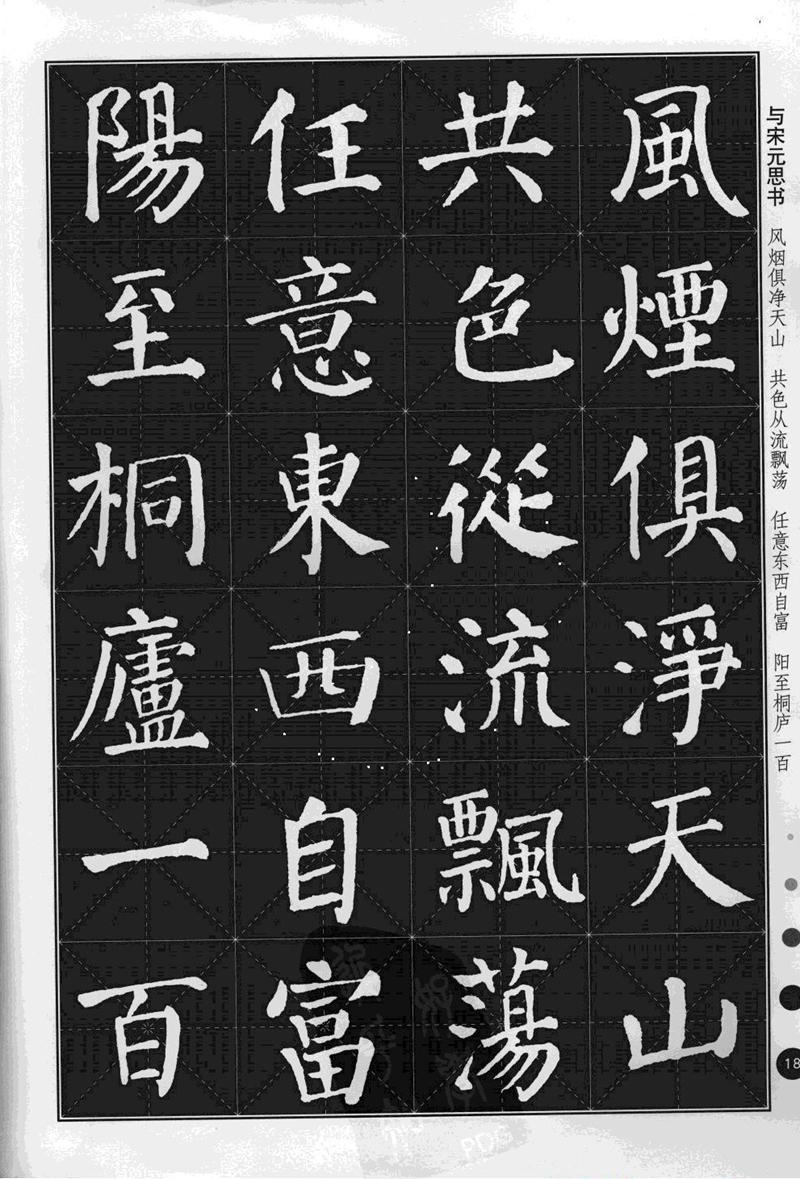 与宋元思书 风烟俱净天山 共色从流飘荡 任意东西自富 阳至桐庐一百
風煙俱淨天山
共色從流飄蕩
任意東西自富
陽至桐廬一百
18
PDG